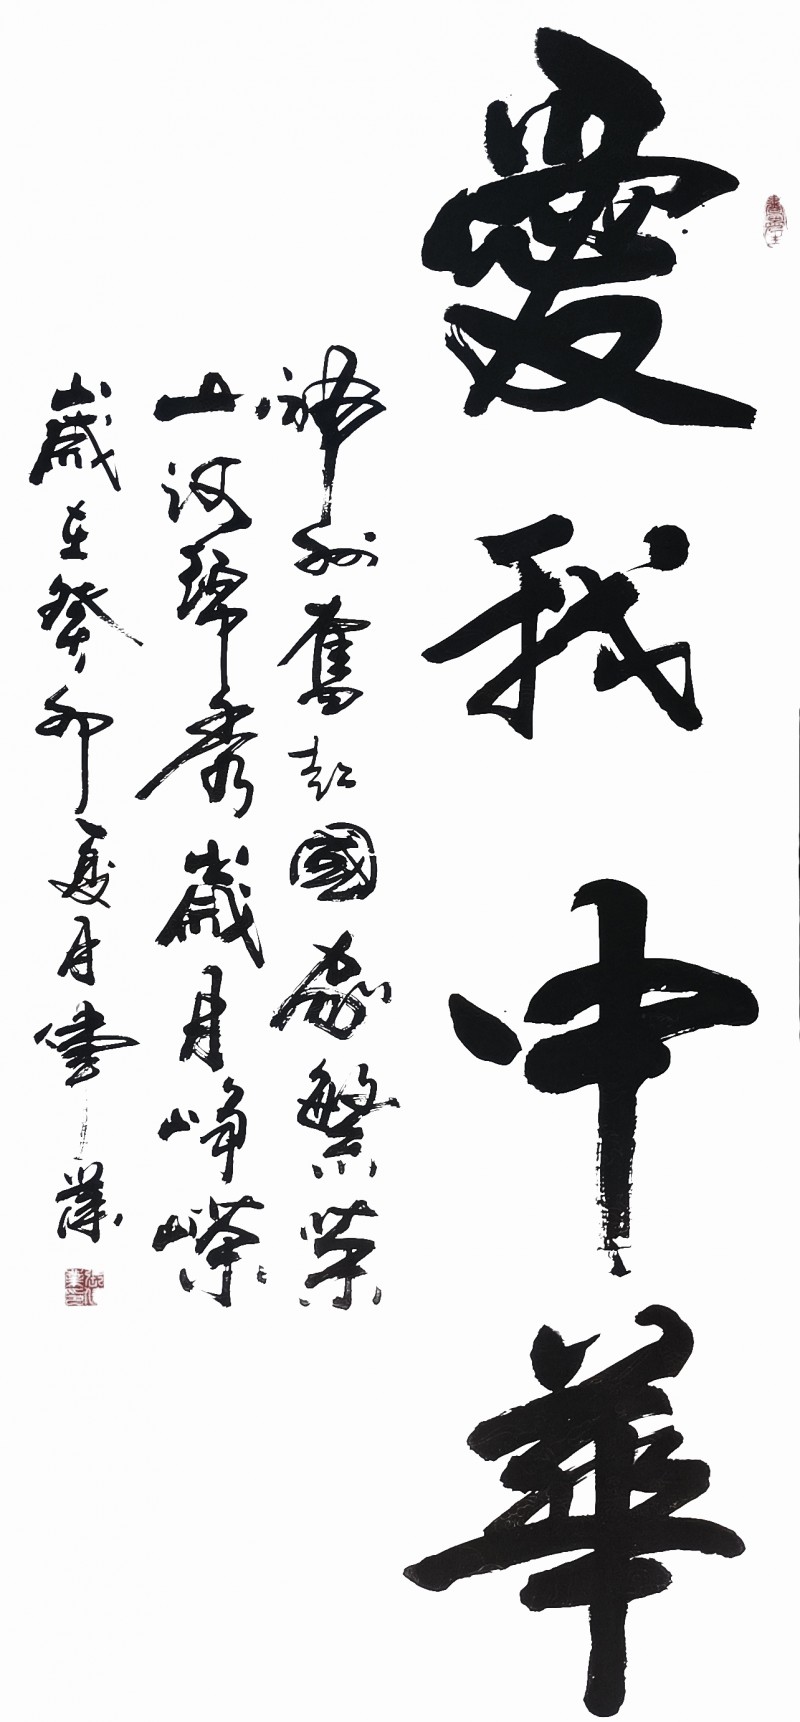 愛我中華
神州奮起國家繁榮
山河錦秀歲月崢嶸
歲在癸卯夏月書